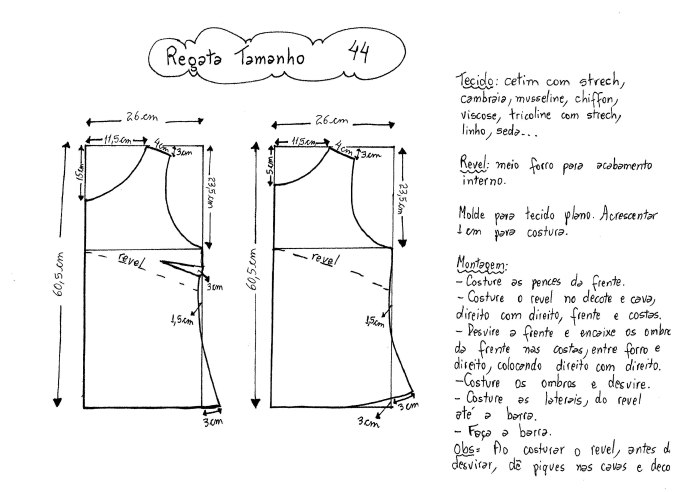 Regata Tamanho 44
26 cm
11,5 cm
4 cm
3 cm
15 cm
23,5 cm
60,5 cm
revel
3 cm
1,5 cm
3 cm
26 cm
11,5 cm
4 cm
3 cm
5 cm
23,5 cm
60,5 cm
revel
1,5 cm
3 cm
3 cm
Tecido: cetim com strech,
cambraia, musseline, chiffon,
viscose, tricoline com strech,
linho, seda...
Revel: meio forro para acabamento
interno.
Molde para tecido plano. Acrescentar
1 cm para costura.
Montagem:
- Costure as pences da frente.
- Costure o revel no decote e cava,
direito com direito, frente e costas.
- Desvire a frente e encaixe os ombro
da frente nas costas, entre forro e
direito, colocando direito com direito.
- Costure os ombros e desvire.
- Costure as laterais, do revel
até a barra.
- Faça a barra.
Obs= Ao costurar o revel, antes d
desvirar, dê piques nas cavas e deco